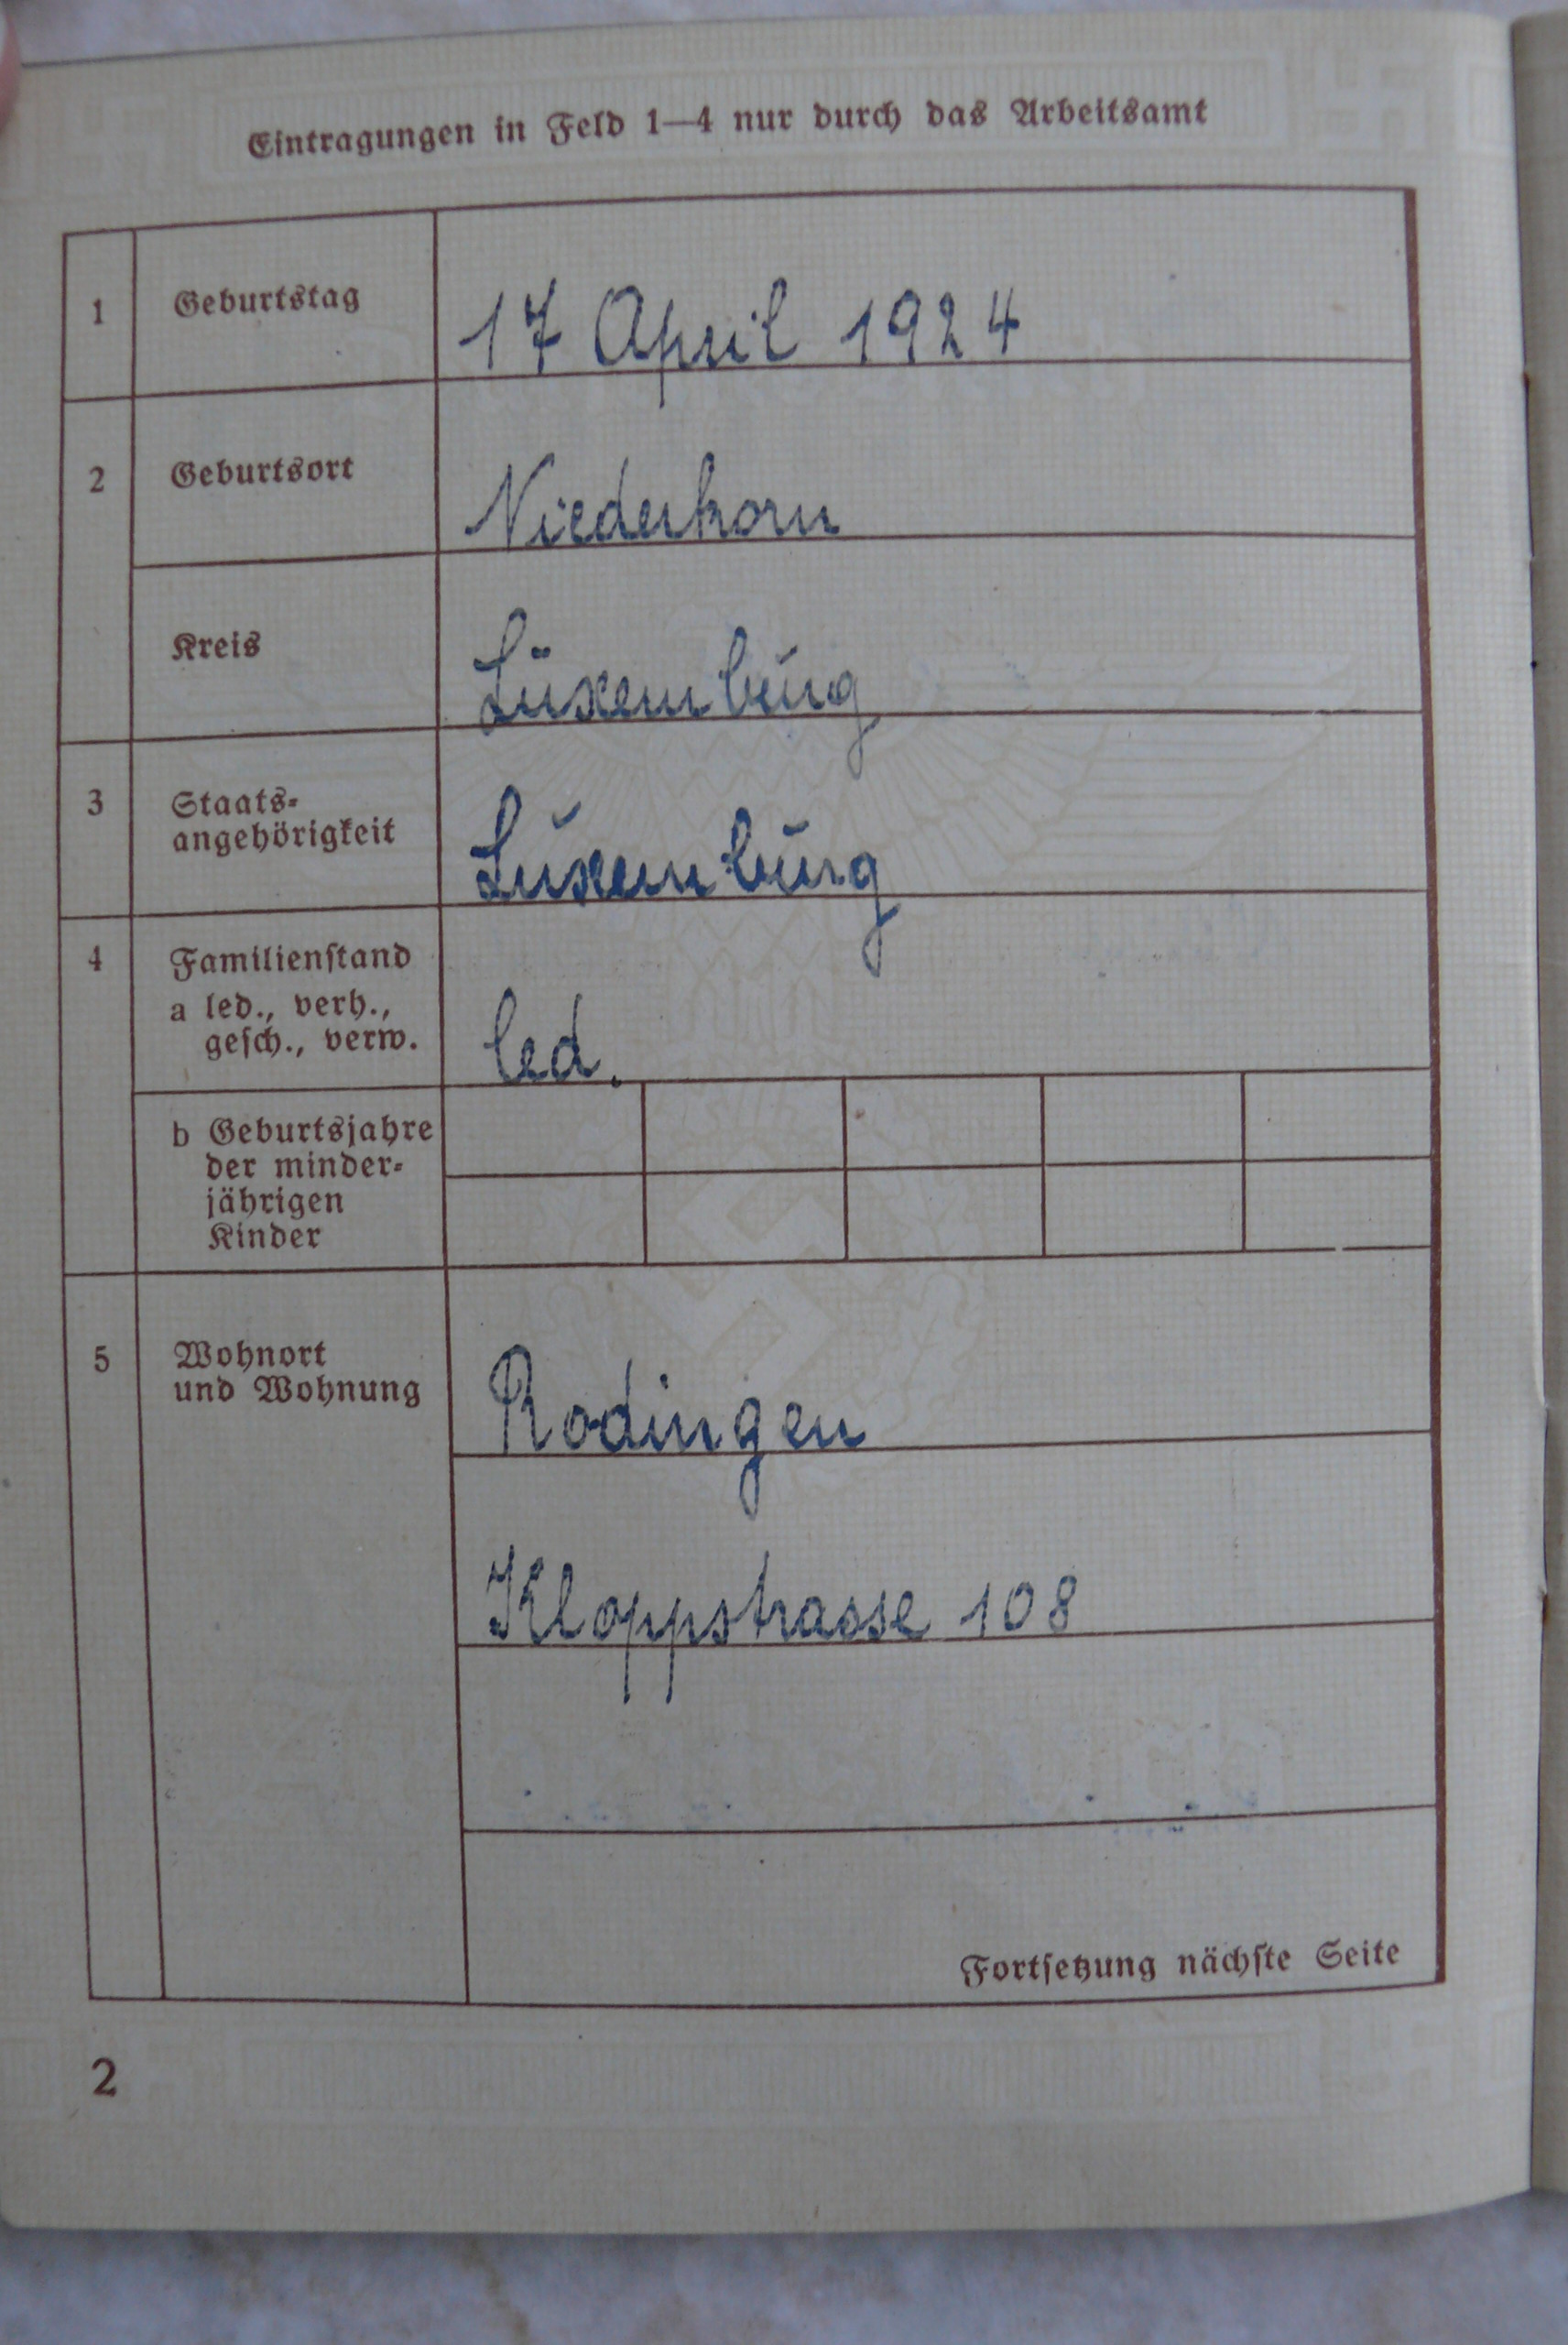 Eintragungen in Feld 1—4 nur durch das Arbeitsamt
1 Geburtstag 17 April 1924
2 Geburtsort Niederkorn
Kreis Luxemburg
3 Staats-
angehörigkeit Luxemburg
4 Familienstand
a led., verh.,
gesch., verw. led.
b Geburtsjahre
der minder-
jährigen
Kinder
5 Wohnort
und Wohnung Rodingen
Kloppstrasse 108
Fortsetzung nächste Seite
2